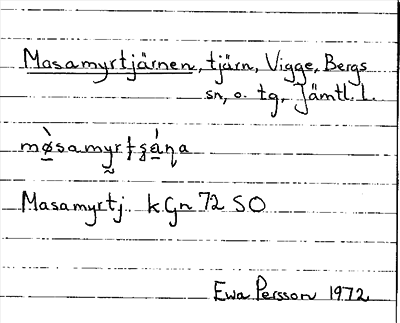 Mosamyrtjärnen, tjärn, Vigge, Bergs
sn, o. tg, Jämtl. l.
mø̀samyrtʂáṇa
Masamyrtj. kGn 72 SO
Ewa Persson 1972